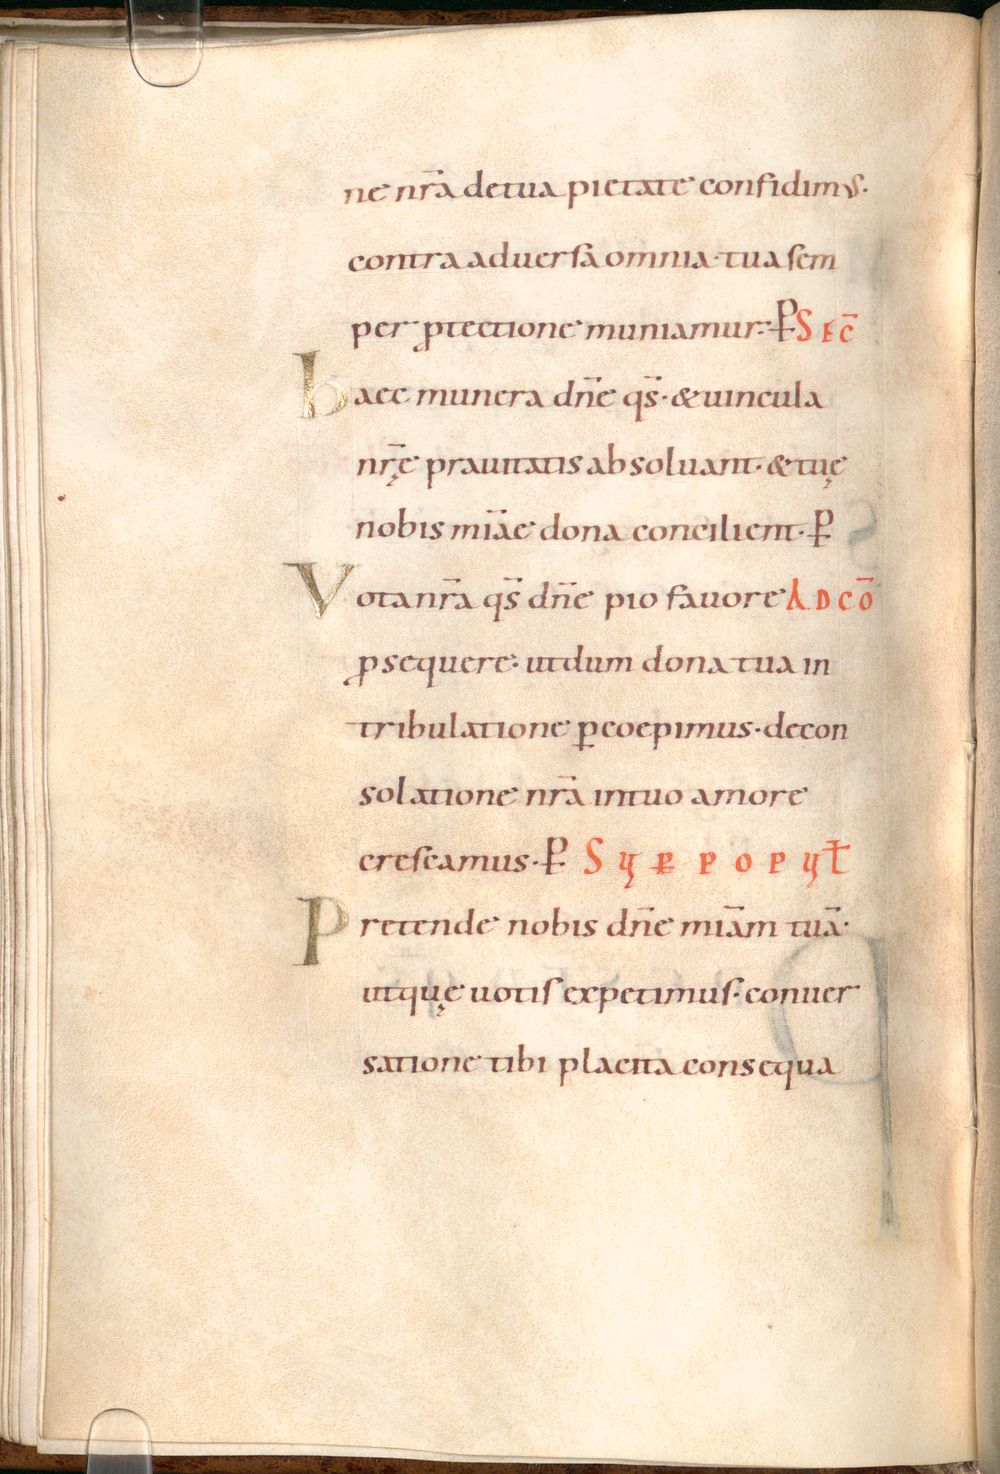 ne nr̄a de tua pietate confidimus.
contra aduersa omnia · tua sem
per ꝓtectione muniamur · ꝑ SEC̄
haec munera dn̄e qs̄ · & uincula
nr̄ę prauitatis absoluant · & tuę
nobis mi̅ae dona concilient · ꝑ
Vota nr̄a qs̄ dn̄e pio fauore AD CŌ
ꝓsequere · ut dum dona tua in
tribulatione ꝑcoepimus · de con
solatione nr̄a in tuo amore
crescamus · ꝑ SUPER POPUL̄
Pretende nobis dn̄e mi̅am tuā ·
ut quę uotis expetimus · conuer
satione tibi placita consequa